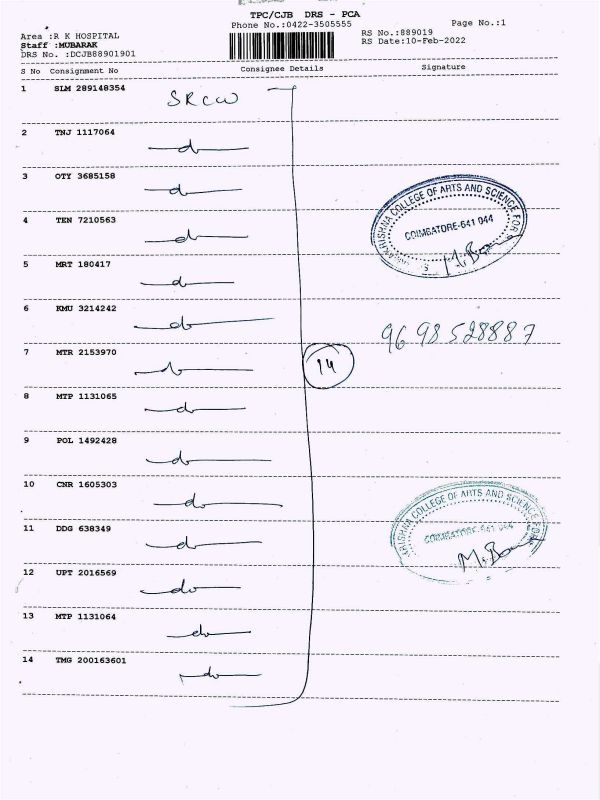 TPC/CJB DRS - PCA
Phone No.:0422-3505555
Page No.:1
Area :R K HOSPITAL
Staff :MUBARAK
DRS No. :DCJB88901901
RS No.:889019
RS Date:10-Feb-2022
S No Consignment No Consignee Details Signature
1 SLM 289148354 SRCW
2 TNJ 1117064 do
3 OTY 3685158 do
4 TEN 7210563 do
5 MRT 180417 do
6 KMU 3214242 do
7 MTR 2153970 do
8 MTP 1131065 do
9 POL 1492428 do
10 CNR 1605303 do
11 DDG 638349 do
12 UPT 2016569 do
13 MTP 1131064 do
14 TMG 200163601 do
14
KRISHNA COLLEGE OF ARTS AND SCIENCE FOR
COIMBATORE-641 044
9698528887
KRISHNA COLLEGE OF ARTS AND SCIENCE FOR
COIMBATORE-641 044